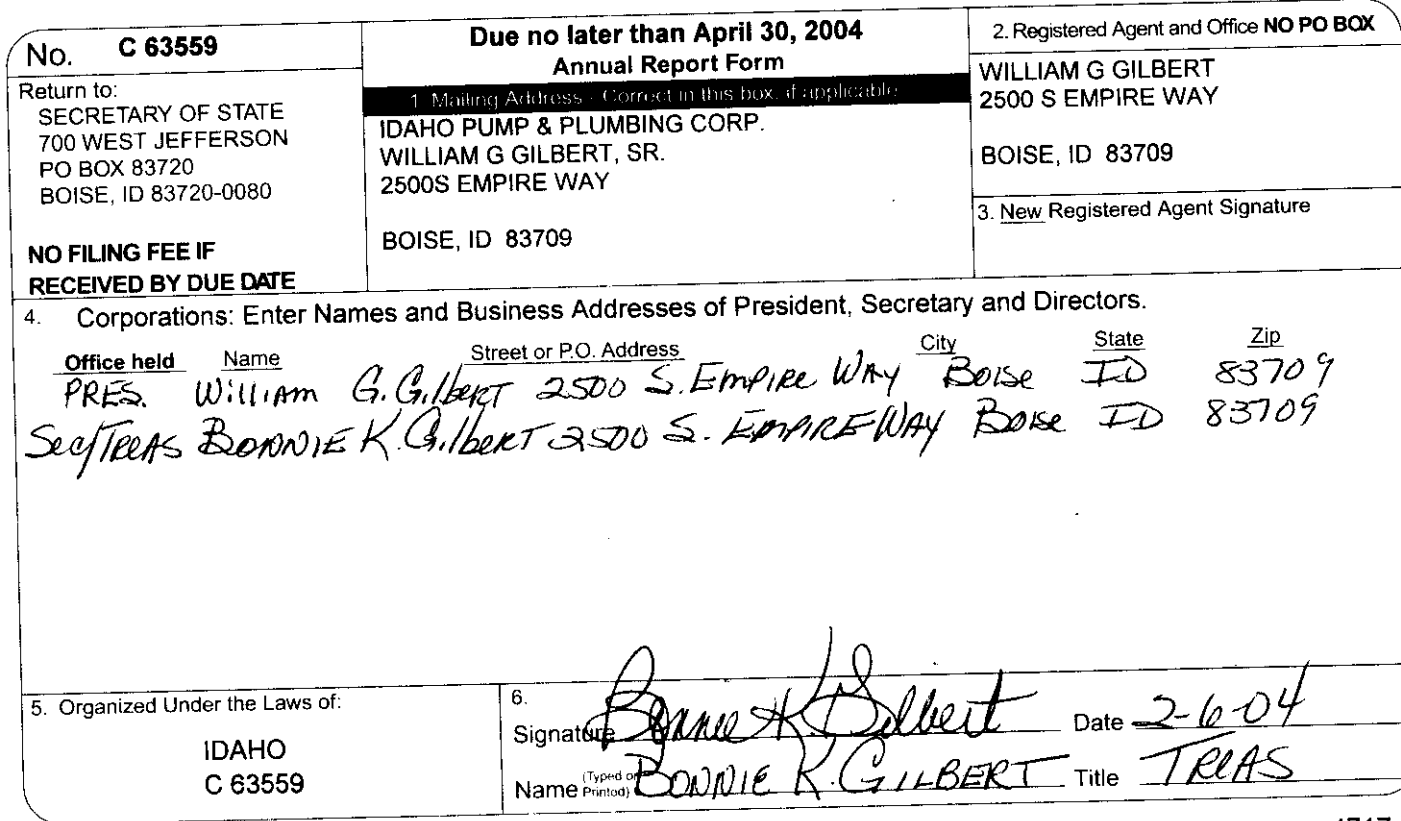 No. C 63559
Return to:
SECRETARY OF STATE
700 WEST JEFFERSON
PO BOX 83720
BOISE, ID 83720-0080
NO FILING FEE IF
RECEIVED BY DUE DATE
Due no later than April 30, 2004
Annual Report Form
1. Mailing Address - Correct in this box, if applicable
IDAHO PUMP & PLUMBING CORP.
WILLIAM G GILBERT, SR.
2500S EMPIRE WAY
BOISE, ID 83709
2. Registered Agent and Office NO PO BOX
WILLIAM G GILBERT
2500 S EMPIRE WAY
BOISE, ID 83709
3. New Registered Agent Signature
4. Corporations: Enter Names and Business Addresses of President, Secretary and Directors.
Office held Name Street or P.O. Address City State Zip
PRES. William G. Gilbert 2500 S. Empire Way Boise ID 83709
Sec/Treas Bonnie K. Gilbert 2500 S. Empire Way Boise ID 83709
5. Organized Under the Laws of:
IDAHO
C 63559
6.
Signature Bonnie K Gilbert Date 2-6-04
Name (Typed or Printed) BONNIE K. GILBERT Title TREAS